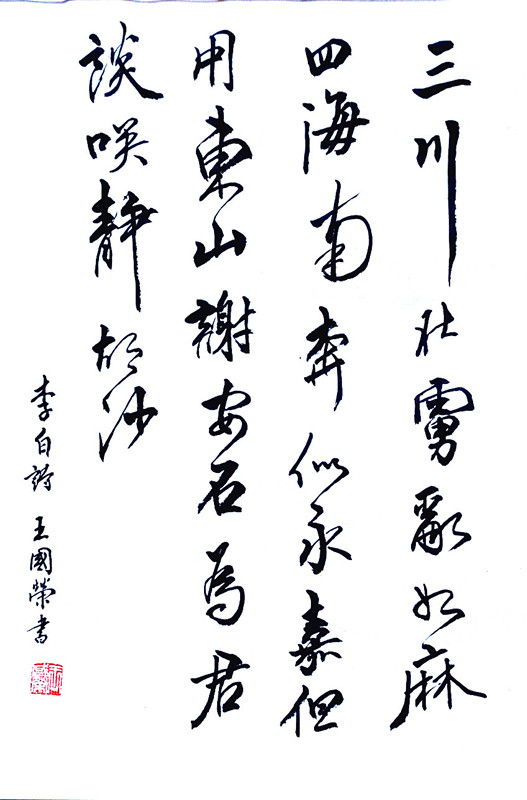 三川北虜亂如麻
四海南奔似永嘉但
用東山謝安石為君
談咲靜胡沙
李白詩 王國榮書